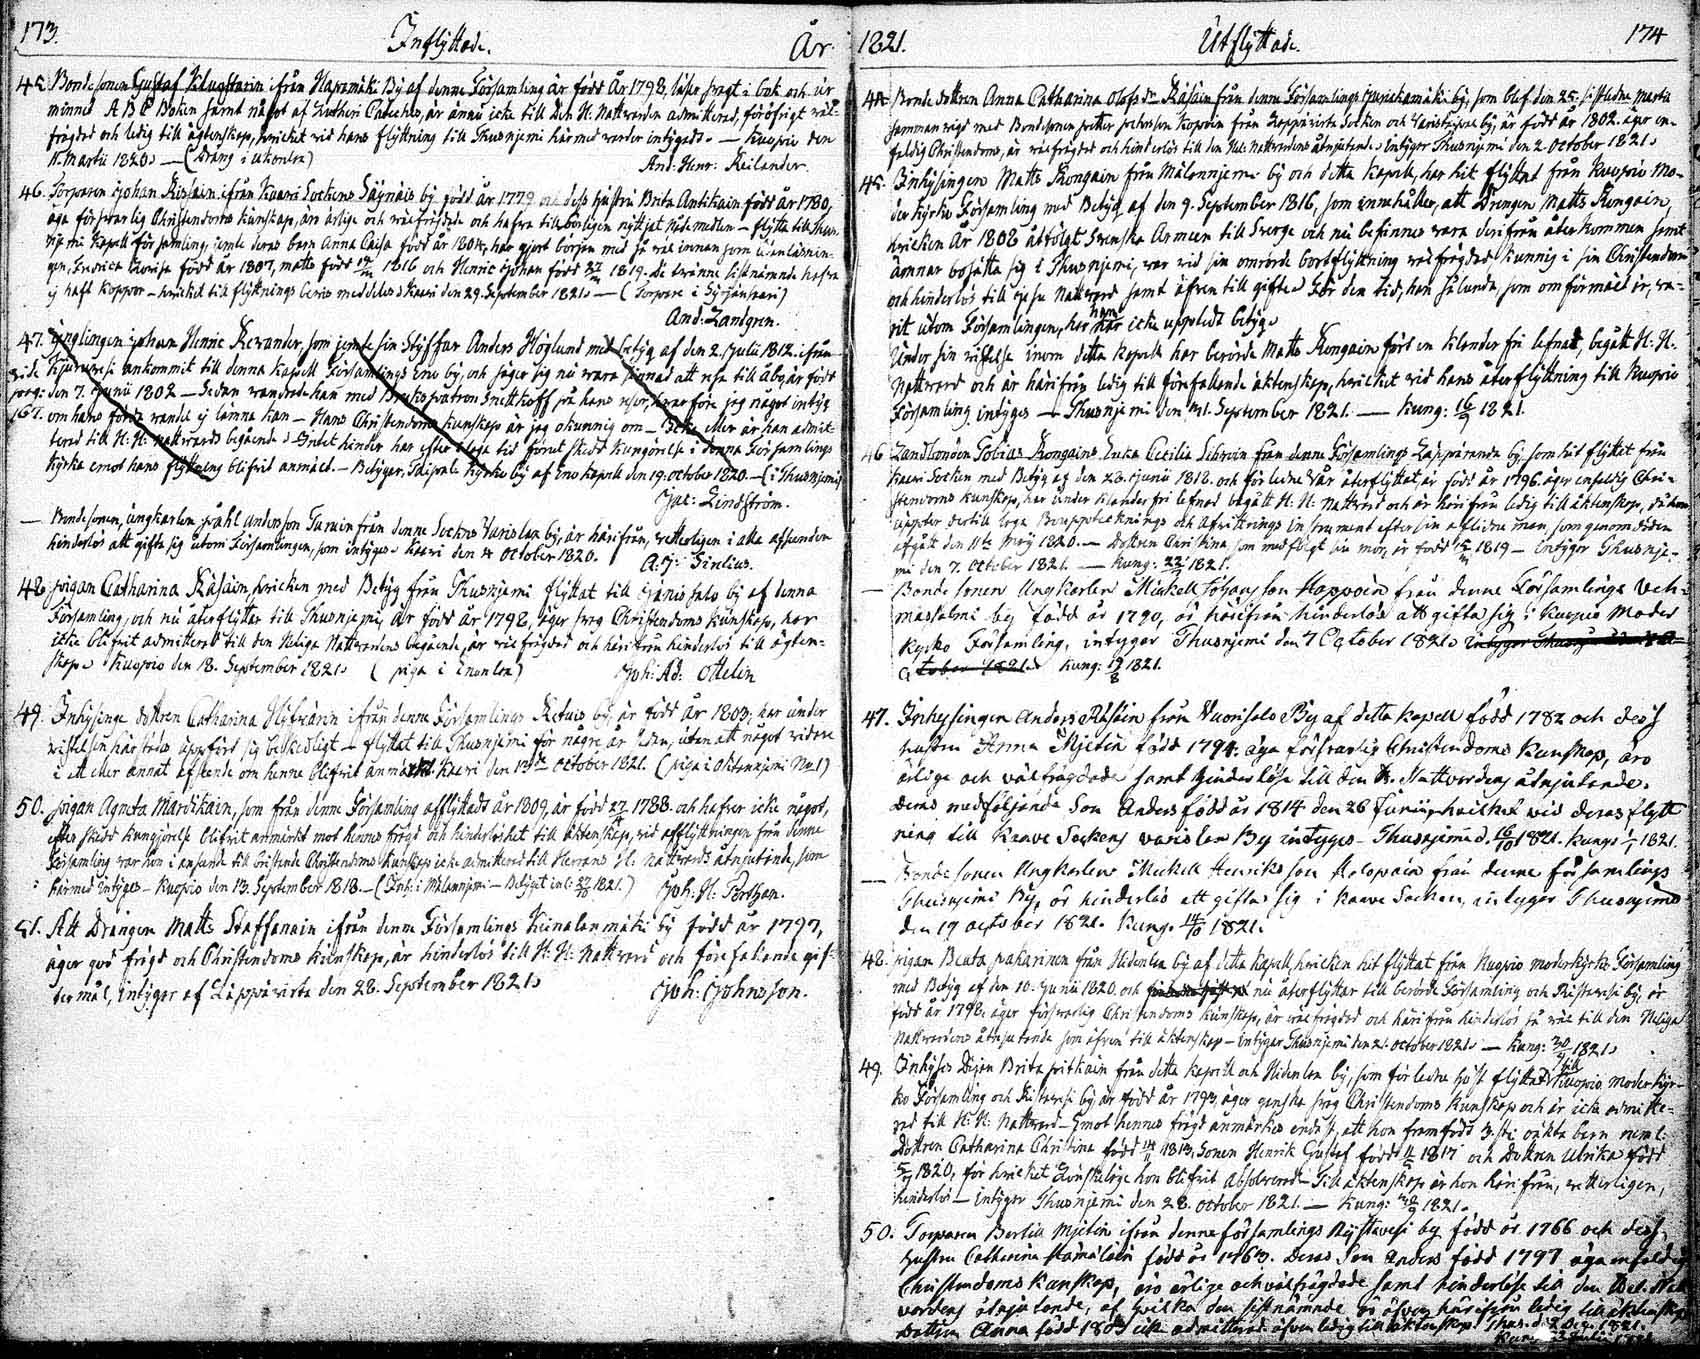 173.
Inflyttade.
År
45. Bondesonen Gustaf Klugstarin ifrån Haxamäki By af denne Församling är född År 1798, läser svagt i bok och ur
minnet A B C Boken samt något af Lutheri Cateches, är ännu icke till den H. Nattvarden admitterad, föröfrigt väl-
frägdad och ledig till ägtenskap, hvilket vid hans flyttning till Thusnjemi härmed varder intygadt. — Kuopio den
11. Martii 1820. — (Dräng i Ukonlax)
And: Henr: Keilander.
46. Torparen Johan Kissain ifrån Kaavi Sockens Säynäis by född år 1779 och dess hustru Brita Antikain född år 1780,
äga försvarlig Christendoms kunskap, äro ärlige och välfrägdade och hafva tillbörligen nyttjat Nådemedlen — flytta till Thus-
njemi Kapell församling, jemte deras barn Anna Caisa född år 1804, har gjort början med så väl innan som utanläsnin-
gen, Fredrica Lovisa född år 1807, Matts född 1816 och Henric Johan född 1819. De tvänne sistnämnde hafva
ej haft koppor — hvilket till flyttnings bevis meddelas Kaavi den 29. September 1821. — (Torpare i Syrjänsaari)
And: Landgren.
47. Ynglingen Johan Henric Rexander, som jemte sin Styffar Anders Höglund med betyg af den 2. Julii 1812. ifrån
Kjuruvesi ankommit till denna Kapell Församlings Eno by, och säger sig nu vara sinnad att resa till Åbo, är född
den 7. Junii 1802 — Sedan vandrade han med Brukspatron Snettkoff på hans resor, hvarföre jag något intyg
om hans förda vandel ej lämna kan — Hans Christendoms kunskap är jag okunnig om — Icke eller är han admit-
terad till H: H: Nattvards begående. Intet hinder har efter i laga tid förut skedt kungörelse i denna Församlings
Kyrka emot hans flyttning blifvit anmäldt. — Betygar, Taipale Kyrko by af Eno Kapell den 19. October 1820. — (i Thusnjemi)
Jac: Lindström.
— Bondesonen, ungkarlen Påhl Andersson Turuin från denne Sockns Varislax by, är härifrån, vetterligen i alla afseenden
hinderlös att gifta sig utom Församlingen, som intygas. Kaavi den 4 October 1820. A. J: Sirelius.
48 Pigan Catharina Räsäin, hvilken med Betyg från Thusnjemi flyttat till Jänissalo by af denna
Församling, och nu återflyttar till Thusnjemi, är född år 1798, äger svag Christendoms kunskap, har
icke blifvit admitterad till den Heliga Nattvardens begående, är välfrägdad och härifrån hinderlös till ägten-
skap. Kuopio den 18. September 1821. (piga i Enonlax) Joh: Ad: Ottelin
49. Inhysinge dottren Catharina Hyfvärin ifrån denne Församlings Retuis by, är född år 1803, har under
vistelsen härstädes uppfört sig beskedligt — flyttat till Thusnjemi för några år sedan, utan att något vidare
i ett eller annat afseende om henne blifvit anmärkt. Kaavi den 13de October 1821. (piga i Ohtonnjemi No 1)
50. Pigan Agneta Mardikain, som från denne Församling afflyttade år 1809, är född 1788. och hafver icke något,
efter skedd kungörelse blifvit anmärkt mot hennes frägd och hinderlöshet till äktenskap, vid afflyttningen från denne
Församling var hon i anseende till bristande Christendoms kunskap icke admitterad till Herrans H: Nattvards åtnjutande, som
härmed intygas — Kuopio den 13. September 1818. — (Inh: i Mälännjemi — Betyget inl: 1821.) Joh: H: Porthan.
51. Att Drängen Matts Staffanain ifrån denne Församlings Keinälänmäki by född år 1797,
äger god frägd och Christendoms kunskap, är hinderlös till H: H: Nattvard och förefallande gif-
termål, intygar af Läppävirta den 28. September 1821.
Joh: Johnsson.
1821.
Utflyttade.
174
44 Bonde dottren Anna Catharina Olofsdr Räsäin från denne Församlings Jurickamäki by, som blef den 25. sistledne Martii
sammanvigd med Bondesonen Petter Johansson Kopoin från Leppävirta Socken och Varistaipal by, är född år 1802. äger en-
faldig Christendom, är välfrägdad och hinderlös till den Hel: Nattvardens åtnjutande. Intygar Thusnjemi den 2 October 1821.
45. Inhysingen Matts Rongain från Mälännjemi by och detta Kapell, har hit flyttat från Kuopio Mo-
der kyrko Församling med Betyg af den 9. September 1816, som innehåller, att Drengen Matts Rongain,
hvilken År 1808 åtföljgt Svenska Armeen till Sverge och nu befinnes vara derifrån återkommen samt
ämnar bosätta sig i Thusnjemi, var vid sin omrörde bortflyttning välfrägdad kunnig i sin Christendom
och hinderlös till sjelfva Nattvard samt äfven till gifte. För den tid, han sålunda, som omförmält är, va-
rit utom Församlingen, har han här icke uppledt betyg.
Under sin vistelse inom detta Kapell har berörde Matts Rongain fört en klander fri lefnad, begått H: H.
Nattvard och är härifrån ledig till förefallande äktenskap, hvilket vid hans återflyttning till Kuopio
Församling intygas — Thusnjemi den 11. September 1821. — Kung: 16/9 1821.
46 Landbonden Tobias Rongains Enka Cecilia Schroin från denne Församlings Lappäranda by, som hit flyttat från
Kaavi Socken med Betyg af den 28. Junii 1818. och förledne Vår återflyttat, är född år 1796. äger enfaldig Chri-
stendoms kunskap, har under klander fri lefnad begått H: H: Nattvard och är härifrån ledig till äktenskap, då hon
uppter dertill laga Beuppteknings och Afvittrings Instrument efter sin aflidne man, som genom döden
afgått den 11te Maij 1820. — Dottren Christina, som medföljgt sin mor, är född 1819 — intygar Thusnje-
mi den 7. October 1821. — Kung: 1821.
— Bonde Sonen Ungkarlen Mickell Johansson Hoppoin från denne Församlings Veh-
massalmi by född år 1790, är härifrån hinderlös att gifta sig i Kuopio Moder
kyrko Församling, intygar Thusnjemi den 7 October 1821. intygar Thusnj
October 1821. Kung: 1821.
47. Inhysingen Anders Räsäin från Vuorisalo By af detta Kapell född 1782 och dess
hustru Anna Mjetin född 1794. äga försvarlig Christendoms kunskap, äro
ärlige och välfrägdade samt hinderlöse till den H. Nattvardens åtnjutande.
Deras medföljande Son Anders född år 1814 den 26 Junii, hvilket vid deras flytt
ning till Kaave Sockens Varislax By intygas — Thusnjemi d. 16/10 1821. Kungs 1821.
— Bonde Sonen Ungkarlen Mickell Henriksson Holopain från denne församlings
Thusnjemi By, är hinderlös att giftas sig i Kaave Socken, intygar Thusnjemi
den 19 october 1821. Kung. 14/10 1821.
48. Pigan Beata Pakarinen från Hidenlax by af detta Kapell, hvilken hit flyttat från Kuopio moderkyrko Församling
med Betyg af den 10. Junii 1820. och nu återflyttar till berörde Församling och Ristavesi by, är
född år 1798. äger försvarlig Christendoms kunskap, är välfrägdad och härifrån hinderlös så väl till den Heliga
Nattvardens åtnjutande som äfven till äktenskap — intygar Thusnjemi den 21. October 1821. — Kung: 1821.
49. Inhyses Pigan Brita Pitkäin från detta Kapell och Hidenlax by, som förledne höst flyttat till Kuopio moderkyr-
ko Församling och Ristavesi by är född år 1793, äger ganska svag Christendoms kunskap och är icke admitte-
rad till H: H: Nattvard — Emot hennes frägd anmärkes endast, att hon framfödt 3. st: oäkta barn neml:
Dottren Catharina Christina född 1813, Sonen Henrik Gustaf född 1817 och Dottren Ulrika född
1820, för hvilket Lönskaläge hon blifvit absolverad — Till äktenskap är hon härifrån, vetterligen,
hinderlös — intygar Thusnjemi den 28. October 1821. — Kung: 1821.
50. Torparen Bertill Mjetin ifrån denne församlings Ryttevesi by född år 1766 och dess
hustru Catharina Hämäläin född år 1763. Deras Son Anders född 1797 äga enfaldig
Christendoms kunskap, äro ärlige och välfrägdade samt hinderlöse till den Hel. Natt
vardens åtnjutande, af hvilka den sistnämnde är äfven härifrån ledig till äktenskap.
Dottren Anna född 1803 icke admitterad, äfven ledig till äktenskap. Thus. d. 2 Dec. 1821.